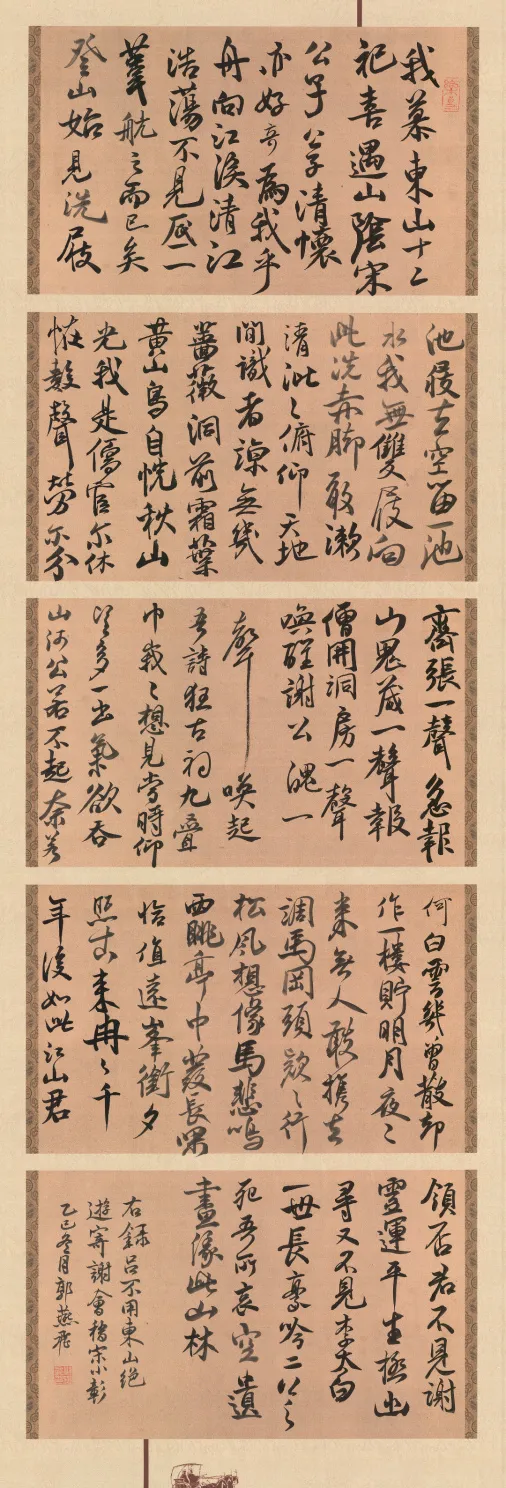 我慕東山十二
祀喜遇山陰宋
公子公子清懷
亦好奇為我乎
舟向江涘清江
浩蕩不見底一
葦航之而已矣
登山始見洗屐
池屐去空留一池
水我無雙屐向
此洗赤脚敢漱
清泚々俯仰天地
間識者諒無幾
薔薇洞前霜葉
黄山鳥自恍秋山
光我是儒官尔休
怪鼓聲勞尔分
齋張一聲急報
山鬼藏一聲報
僧開洞房一聲
喚醒謝公魄一
聲喚起
吾詩狂古祠九疊
巾峩々想見當時仰
望多一出氣欲吞
山河公若不起奈若
何白雲幾曾散却
作一樓貯明月夜々
来無人敢携去
調馬岡頭欵々行
松風想像馬悲鳴
西眺亭中發長嘆
恰值遠峯銜夕
照古来冉々千
年後如此江山君
領否君不見謝
靈運平生極幽
尋又不見李太白
一世長豪吟二公之
死吾所哀空遺
畫像此山林
右録吕不用東山絶
遊寄謝會稽宋小彰
乙巳冬月郭燕飛